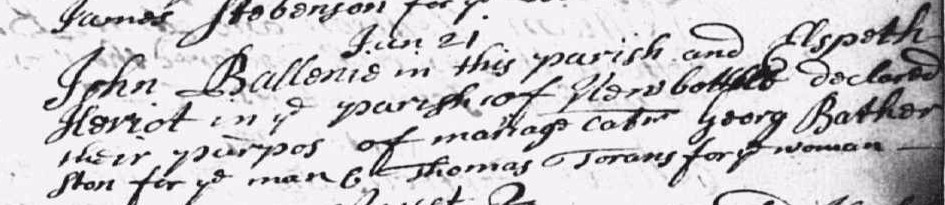 James Stebenson for ye
Jan 21
John Ballenie in this parish and Elspeth
Heriot in ye parish of Newbottle declared
their purpos of mariage catr Georg Bather
ston for ye man & Thomas Torans for ye woman